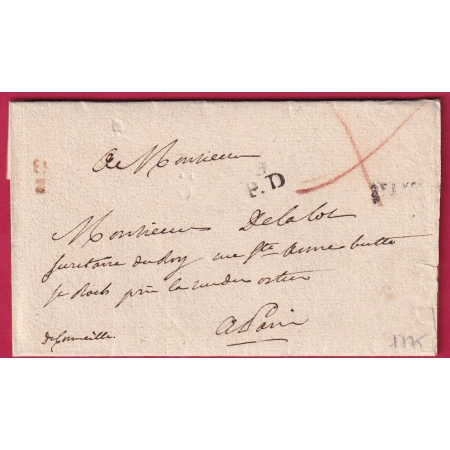 A Monsieur
P.D
Monsieur Delalot
secretaire du Roy rue Ste Anne butte
St Roch près la rue
A Paris
de Corneille.
1775